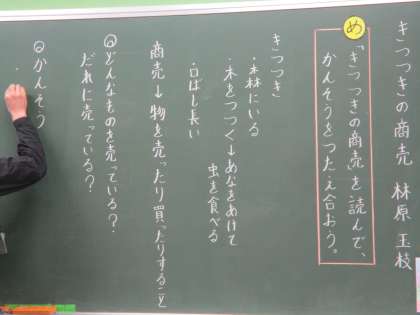 きつつきの商売 林原玉枝
め
「きつつきの商売」を読んで、
かんそうをつたえ合おう。
きつつき
・森にいる
・木をつつく→あなをあけて
虫を食べる
・口ばし長い
商売→物を売ったり買ったりすること
どんなものを売っている?
だれに売っている?
かんそう